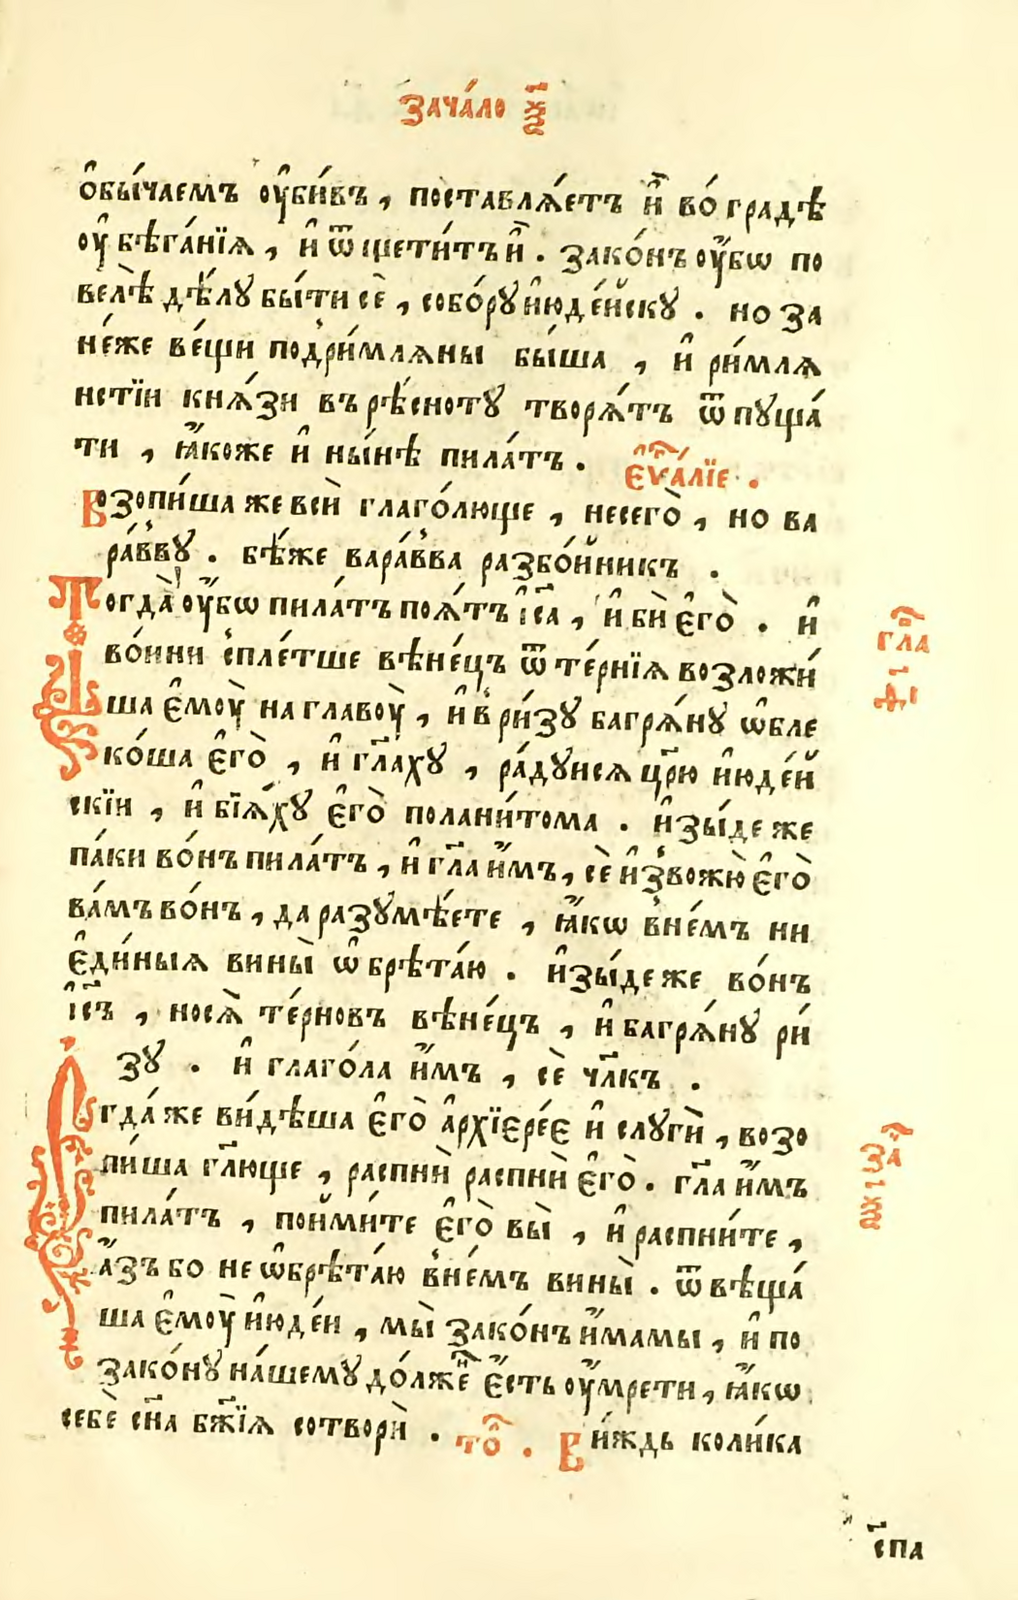 зача́ло ѯ҃
ѻ҆бы́чаемъ ᲂу҆би́въ , поставлѧ́етъ и҆̀ во́ градѣ
ᲂу҆ бѣга́нїѧ , и҆ ѿщети́тъ и҆̀ . зако́нъ ᲂу҆́бѡ по
велѣ̀ дѣ́лу бы́ти сѐ , собо́ру и҆юде́йску . но за
не́же ве́щи под̾ри́млѧны бы́ша , и҆ ри́млѧ
нстїи кнѧ́зи въ рѣ́сноту творѧ́тъ ѿпуща́
ти , ꙗ҆́коже и҆ ны́нѣ пила́тъ . є҆ѵⷢ҇а́лїе .
Возопи́ша же всѝ глаго́люще , не сего̀ , но ва
ра́вву . бѣ́же вара́вва разбо́йникъ .
Тогда̀ ᲂу҆́бѡ пила́тъ поѧ́тъ і҆с҃а , и҆ бѝ є҆го̀ . и҆
во́ини спле́тше вѣне́цъ ѿ те́рнїѧ возложи́
ша є҆моу̀ на главоу̀ , и҆ в̾ ри́зу багрѧ́ну ѡ҆бле
ко́ша є҆го̀ , и҆ гл҃аху , ра́дуисѧ цр҃ю и҆юде́й
скїи , и҆ бїѧ́ху є҆го̀ полани́тома . и҆зы́де же
па́ки во́нъ пила́тъ , и҆ гл҃а и҆́мъ , сѐ и҆з̾вожю̀ є҆го̀
ва́мъ во́нъ , да разумѣ́ете , ꙗ҆́кѡ в̾не́мъ ни
є҆ди́ныѧ вины̀ ѡ҆брѣта́ю . и҆зы́де же во́нъ
і҆с҃ъ , носѧ̀ те́рновъ вѣне́цъ , и҆ багрѧ́ну ри́
зу . и҆ глаго́ла и҆́мъ , сѐ чл҃къ .
Єгда́ же ви́дѣша є҆го̀ а҆рхїєре́є и҆ слугѝ , возо
пи́ша гл҃юще , распнѝ распнѝ є҆го̀ . гл҃а и҆́мъ
пила́тъ , пойми́те є҆го̀ вы̀ , и҆ распни́те ,
а҆́зъ бо не ѡ҆брѣта́ю в̾не́мъ вины̀ . ѿвѣща́
ша є҆моу̀ и҆юде́и , мы̀ зако́нъ и҆́мамы , и҆ по
зако́ну на́шему до́лжеⷩ҇ є҆́сть ᲂу҆́мрети , ꙗ҆́кѡ
себѐ сн҃а бж҃їѧ сотворѝ . тоⷧ҇ . Ви́ждь коли́ка
гла
заⷱ҇
сп҃а